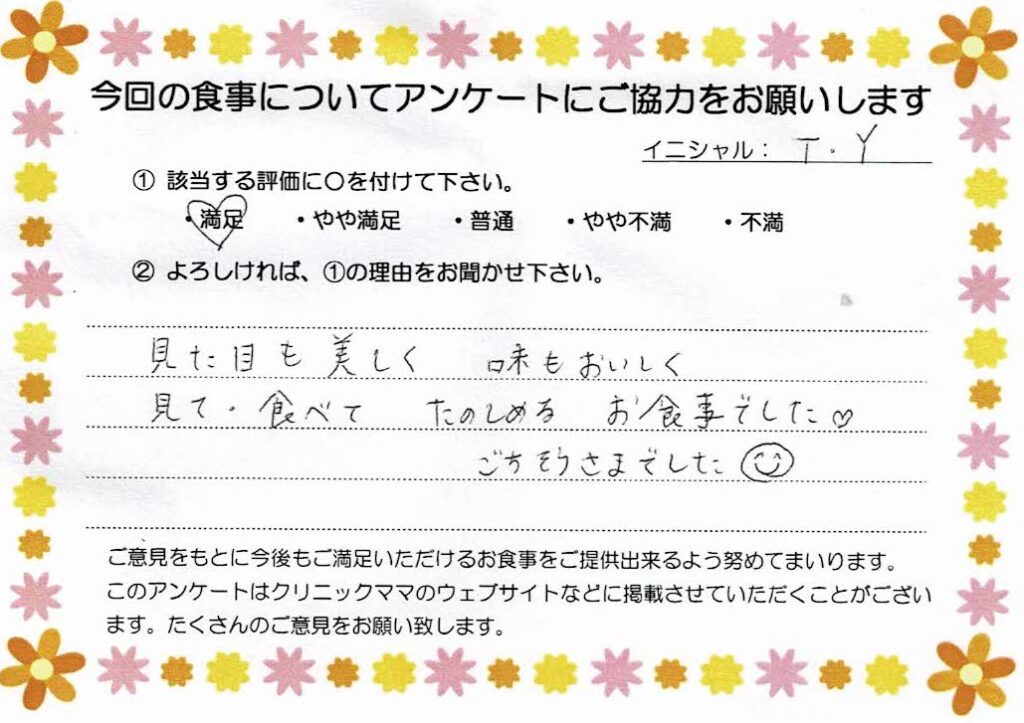 今回の食事についてアンケートにご協力をお願いします
イニシャル： T.Y
① 該当する評価に〇を付けて下さい。
・満足 ・やや満足 ・普通 ・やや不満 ・不満
② よろしければ、①の理由をお聞かせ下さい。
見た目も美しく 味もおいしく
見て・食べて たのしめる お食事でした♡
ごちそうさまでした
ご意見をもとに今後もご満足いただけるお食事をご提供出来るよう努めてまいります。
このアンケートはクリニックママのウェブサイトなどに掲載させていただくことがござい
ます。たくさんのご意見をお願い致します。